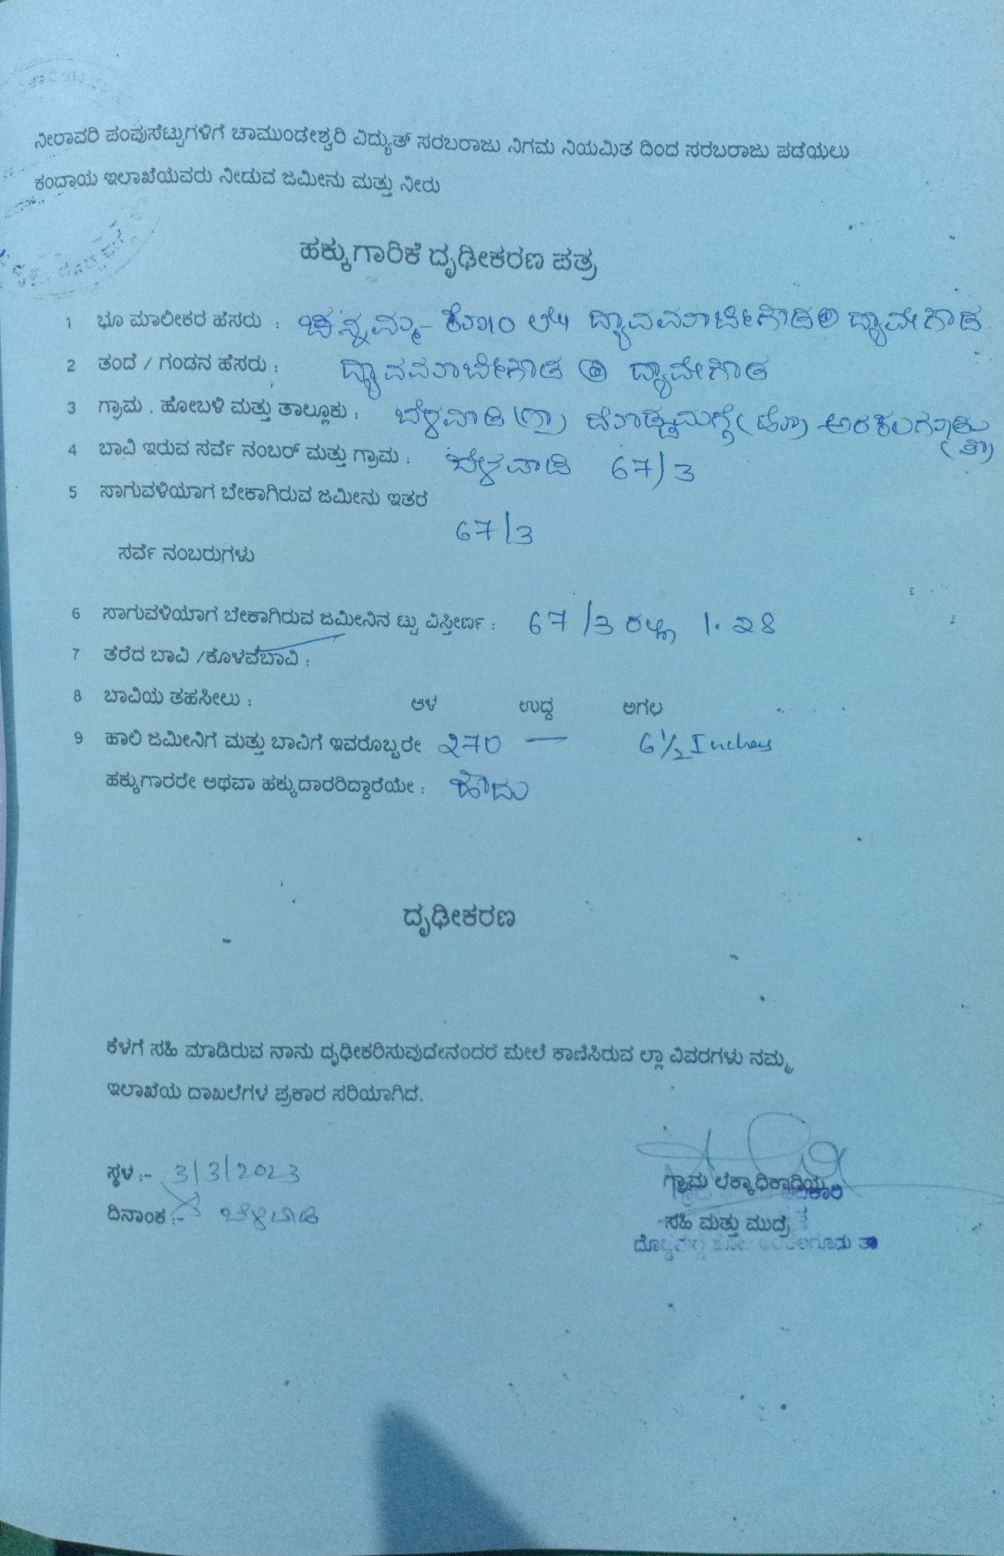 ನೀರಾವರಿ ಪಂಪುಸೆಟ್ಟುಗಳಿಗೆ ಚಾಮುಂಡೇಶ್ವರಿ ವಿದ್ಯುತ್ ಸರಬರಾಜು ನಿಗಮ ನಿಯಮಿತ ದಿಂದ ಸರಬರಾಜು ಪಡೆಯಲು
ಕಂದಾಯ ಇಲಾಖೆಯವರು ನೀಡುವ ಜಮೀನು ಮತ್ತು ನೀರು
ಹಕ್ಕುಗಾರಿಕೆ ದೃಢೀಕರಣ ಪತ್ರ
1 ಭೂ ಮಾಲೀಕರ ಹೆಸರು : ಚಿನ್ನಮ್ಮ ದ್ಯಾವಮಾಚೇಗೌಡ ದ್ಯಾವೇಗೌಡ
2 ತಂದೆ / ಗಂಡನ ಹೆಸರು : ದ್ಯಾವಮಾಚೇಗೌಡ @ ದ್ಯಾವೇಗೌಡ
3 ಗ್ರಾಮ . ಹೋಬಳಿ ಮತ್ತು ತಾಲ್ಲೂಕು : ಬೆಳವಾಡಿ (ಗ್ರಾ) ದೊಡ್ಡಮಗ್ಗೆ (ಹೋ) ಅರಕಲಗೂಡು (ತಾ)
4 ಬಾವಿ ಇರುವ ಸರ್ವೆ ನಂಬರ್ ಮತ್ತು ಗ್ರಾಮ : ಬೆಳವಾಡಿ 67/3
5 ಸಾಗುವಳಿಯಾಗ ಬೇಕಾಗಿರುವ ಜಮೀನು ಇತರ
67/3
ಸರ್ವೆ ನಂಬರುಗಳು
6 ಸಾಗುವಳಿಯಾಗ ಬೇಕಾಗಿರುವ ಜಮೀನಿನ ಟ್ಟು ವಿಸ್ತೀರ್ಣ : 67/3 ರಲ್ಲಿ 1.28
7 ತೆರೆದ ಬಾವಿ /ಕೊಳವೆಬಾವಿ :
8 ಬಾವಿಯ ತಹಸೀಲು : ಆಳ ಉದ್ದ ಅಗಲ
9 ಹಾಲಿ ಜಮೀನಿಗೆ ಮತ್ತು ಬಾವಿಗೆ ಇವರೊಬ್ಬರೇ 270 — 6½ Inches
ಹಕ್ಕುಗಾರರೇ ಅಥವಾ ಹಕ್ಕುದಾರರಿದ್ದಾರೆಯೇ : ಹೌದು
ದೃಢೀಕರಣ
ಕೆಳಗೆ ಸಹಿ ಮಾಡಿರುವ ನಾನು ದೃಢೀಕರಿಸುವುದೇನಂದರೆ ಮೇಲೆ ಕಾಣಿಸಿರುವ ಲ್ಲಾ ವಿವರಗಳು ನಮ್ಮ
ಇಲಾಖೆಯ ದಾಖಲೆಗಳ ಪ್ರಕಾರ ಸರಿಯಾಗಿದೆ.
ಸ್ಥಳ :- 3/3/2023
ದಿನಾಂಕ :- ಬೆಳವಾಡಿ
ಗ್ರಾಮ ಲೆಕ್ಕಾಧಿಕಾರಿಯ
ಸಹಿ ಮತ್ತು ಮುದ್ರೆ
ದೊಡ್ಡಮಗ್ಗೆ ಹೋ. ಅರಕಲಗೂಡು ತಾ